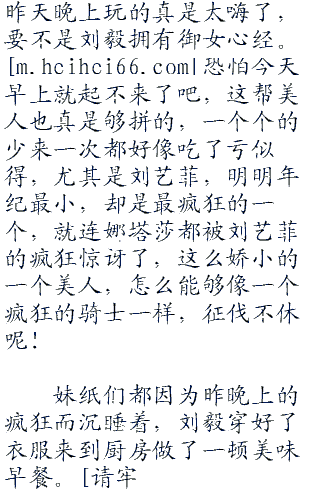 昨天晚上玩的真是太嗨了，
要不是刘毅拥有御女心经。
[m.hcihci66.com|恐怕今天
早上就起不来了吧，这帮美
人也真是够拼的，一个个的
少来一次都好像吃了亏似
得，尤其是刘艺菲，明明年
纪最小，却是最疯狂的一
个，就连娜塔莎都被刘艺菲
的疯狂惊讶了，这么娇小的
一个美人，怎么能够像一个
疯狂的骑士一样，征伐不休
呢！
妹纸们都因为昨晚上的
疯狂而沉睡着，刘毅穿好了
衣服来到厨房做了一顿美味
早餐。[请牢